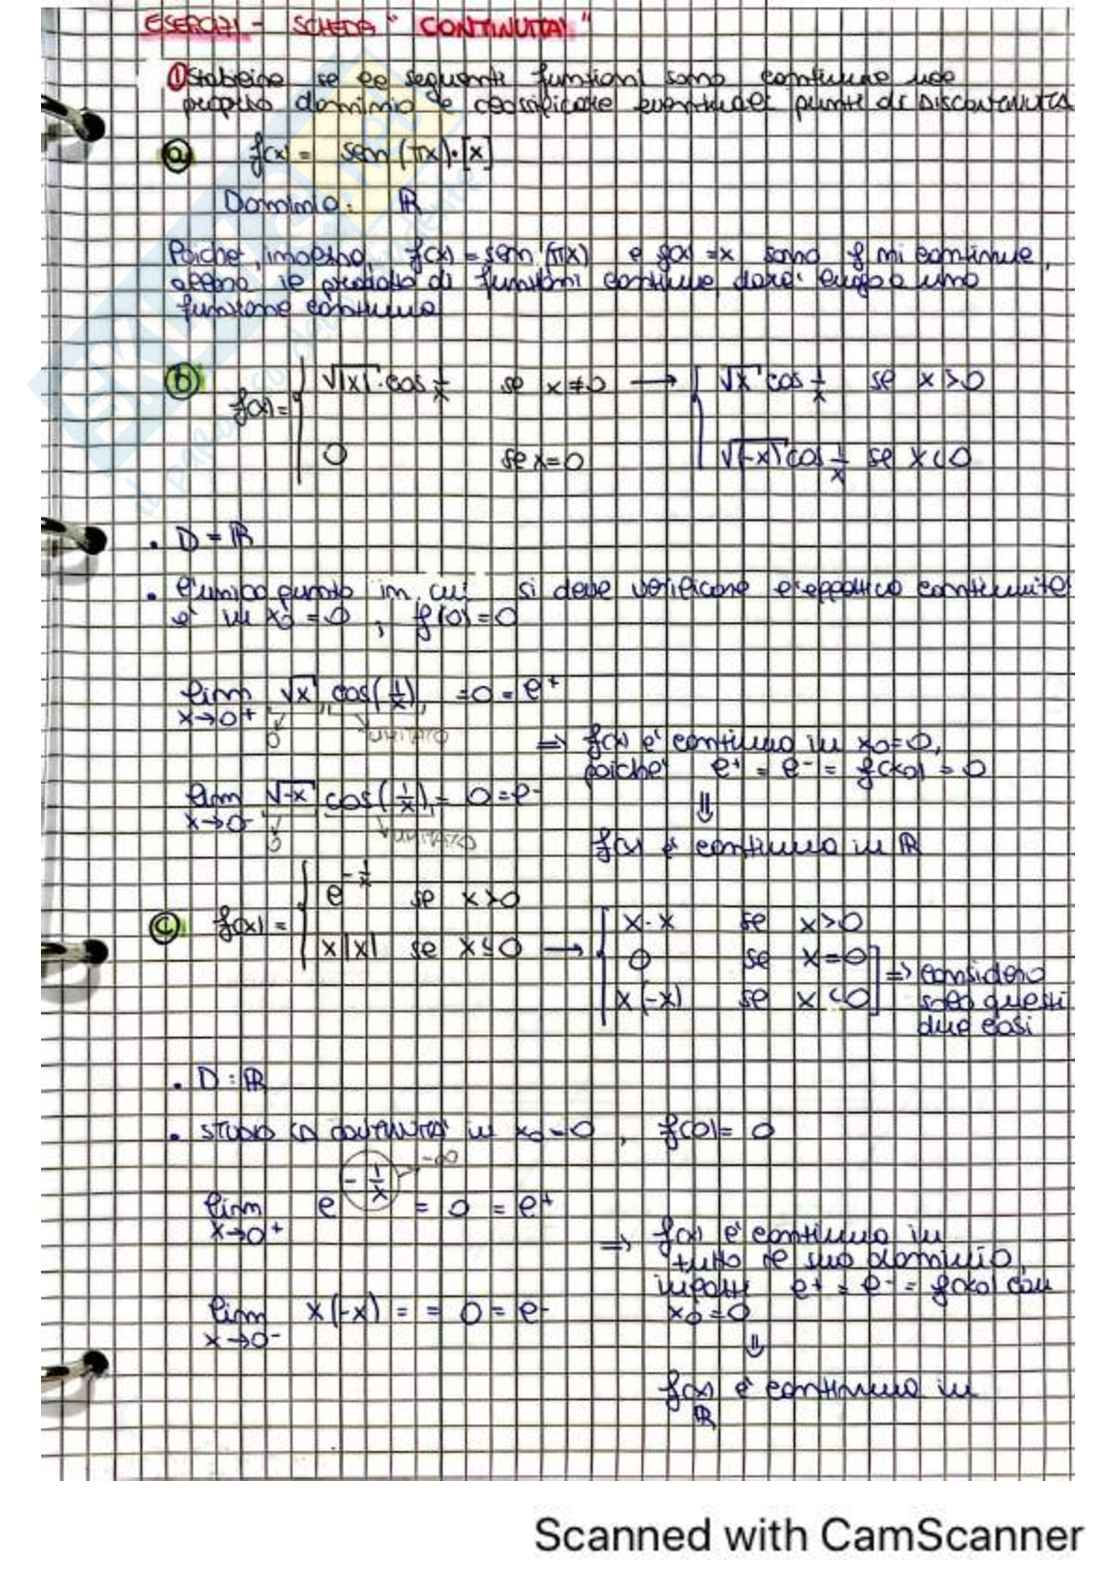 ESERCIZI - SCHEDA "CONTINUITA'"
① Stabilire se le seguenti funzioni sono continue nel
proprio dominio e classificare eventuali punti di DISCONTINUITÀ
ⓐ f(x) = sen(πx)·[x]
Dominio: ℝ
Poiché, f(x) = sen(πx) e f(x) = x sono f.ni continue,
allora il prodotto di funzioni continue darà luogo a una
funzione continua
ⓑ f(x) = { √|x| · cos 1/x se x ≠ 0 → { √x cos 1/x se x > 0
0 se x = 0 √-x cos 1/x se x < 0
• D = ℝ
• l'unico punto in cui si deve verificare continuità
è in x₀ = 0, f(0) = 0
lim x→0⁺ √x cos(1/x) = 0 = l⁺
0 limitata
⇒ f(x) è continua in x₀ = 0,
poiché l⁺ = l⁻ = f(x₀) = 0
lim x→0⁻ √-x cos(1/x) = 0 = l⁻
0 limitata
⇓
f(x) è continua in ℝ
ⓒ f(x) = { e^(-1/x) se x > 0
x|x| se x ≤ 0 → { x·x se x > 0
0 se x = 0
x(-x) se x < 0 ] ⇒ considero
solo questi
due casi
• D: ℝ
• STUDIO LA CONTINUITA' in x₀ = 0, f(0) = 0
lim x→0⁺ e^(-1/x) = 0 = l⁺
-∞
⇒ f(x) è continua in
tutto il suo dominio,
infatti l⁺ = l⁻ = f(x₀) con
x₀ = 0
lim x→0⁻ x(-x) = = 0 = l⁻
⇓
f(x) è continua in
ℝ
Scanned with CamScanner